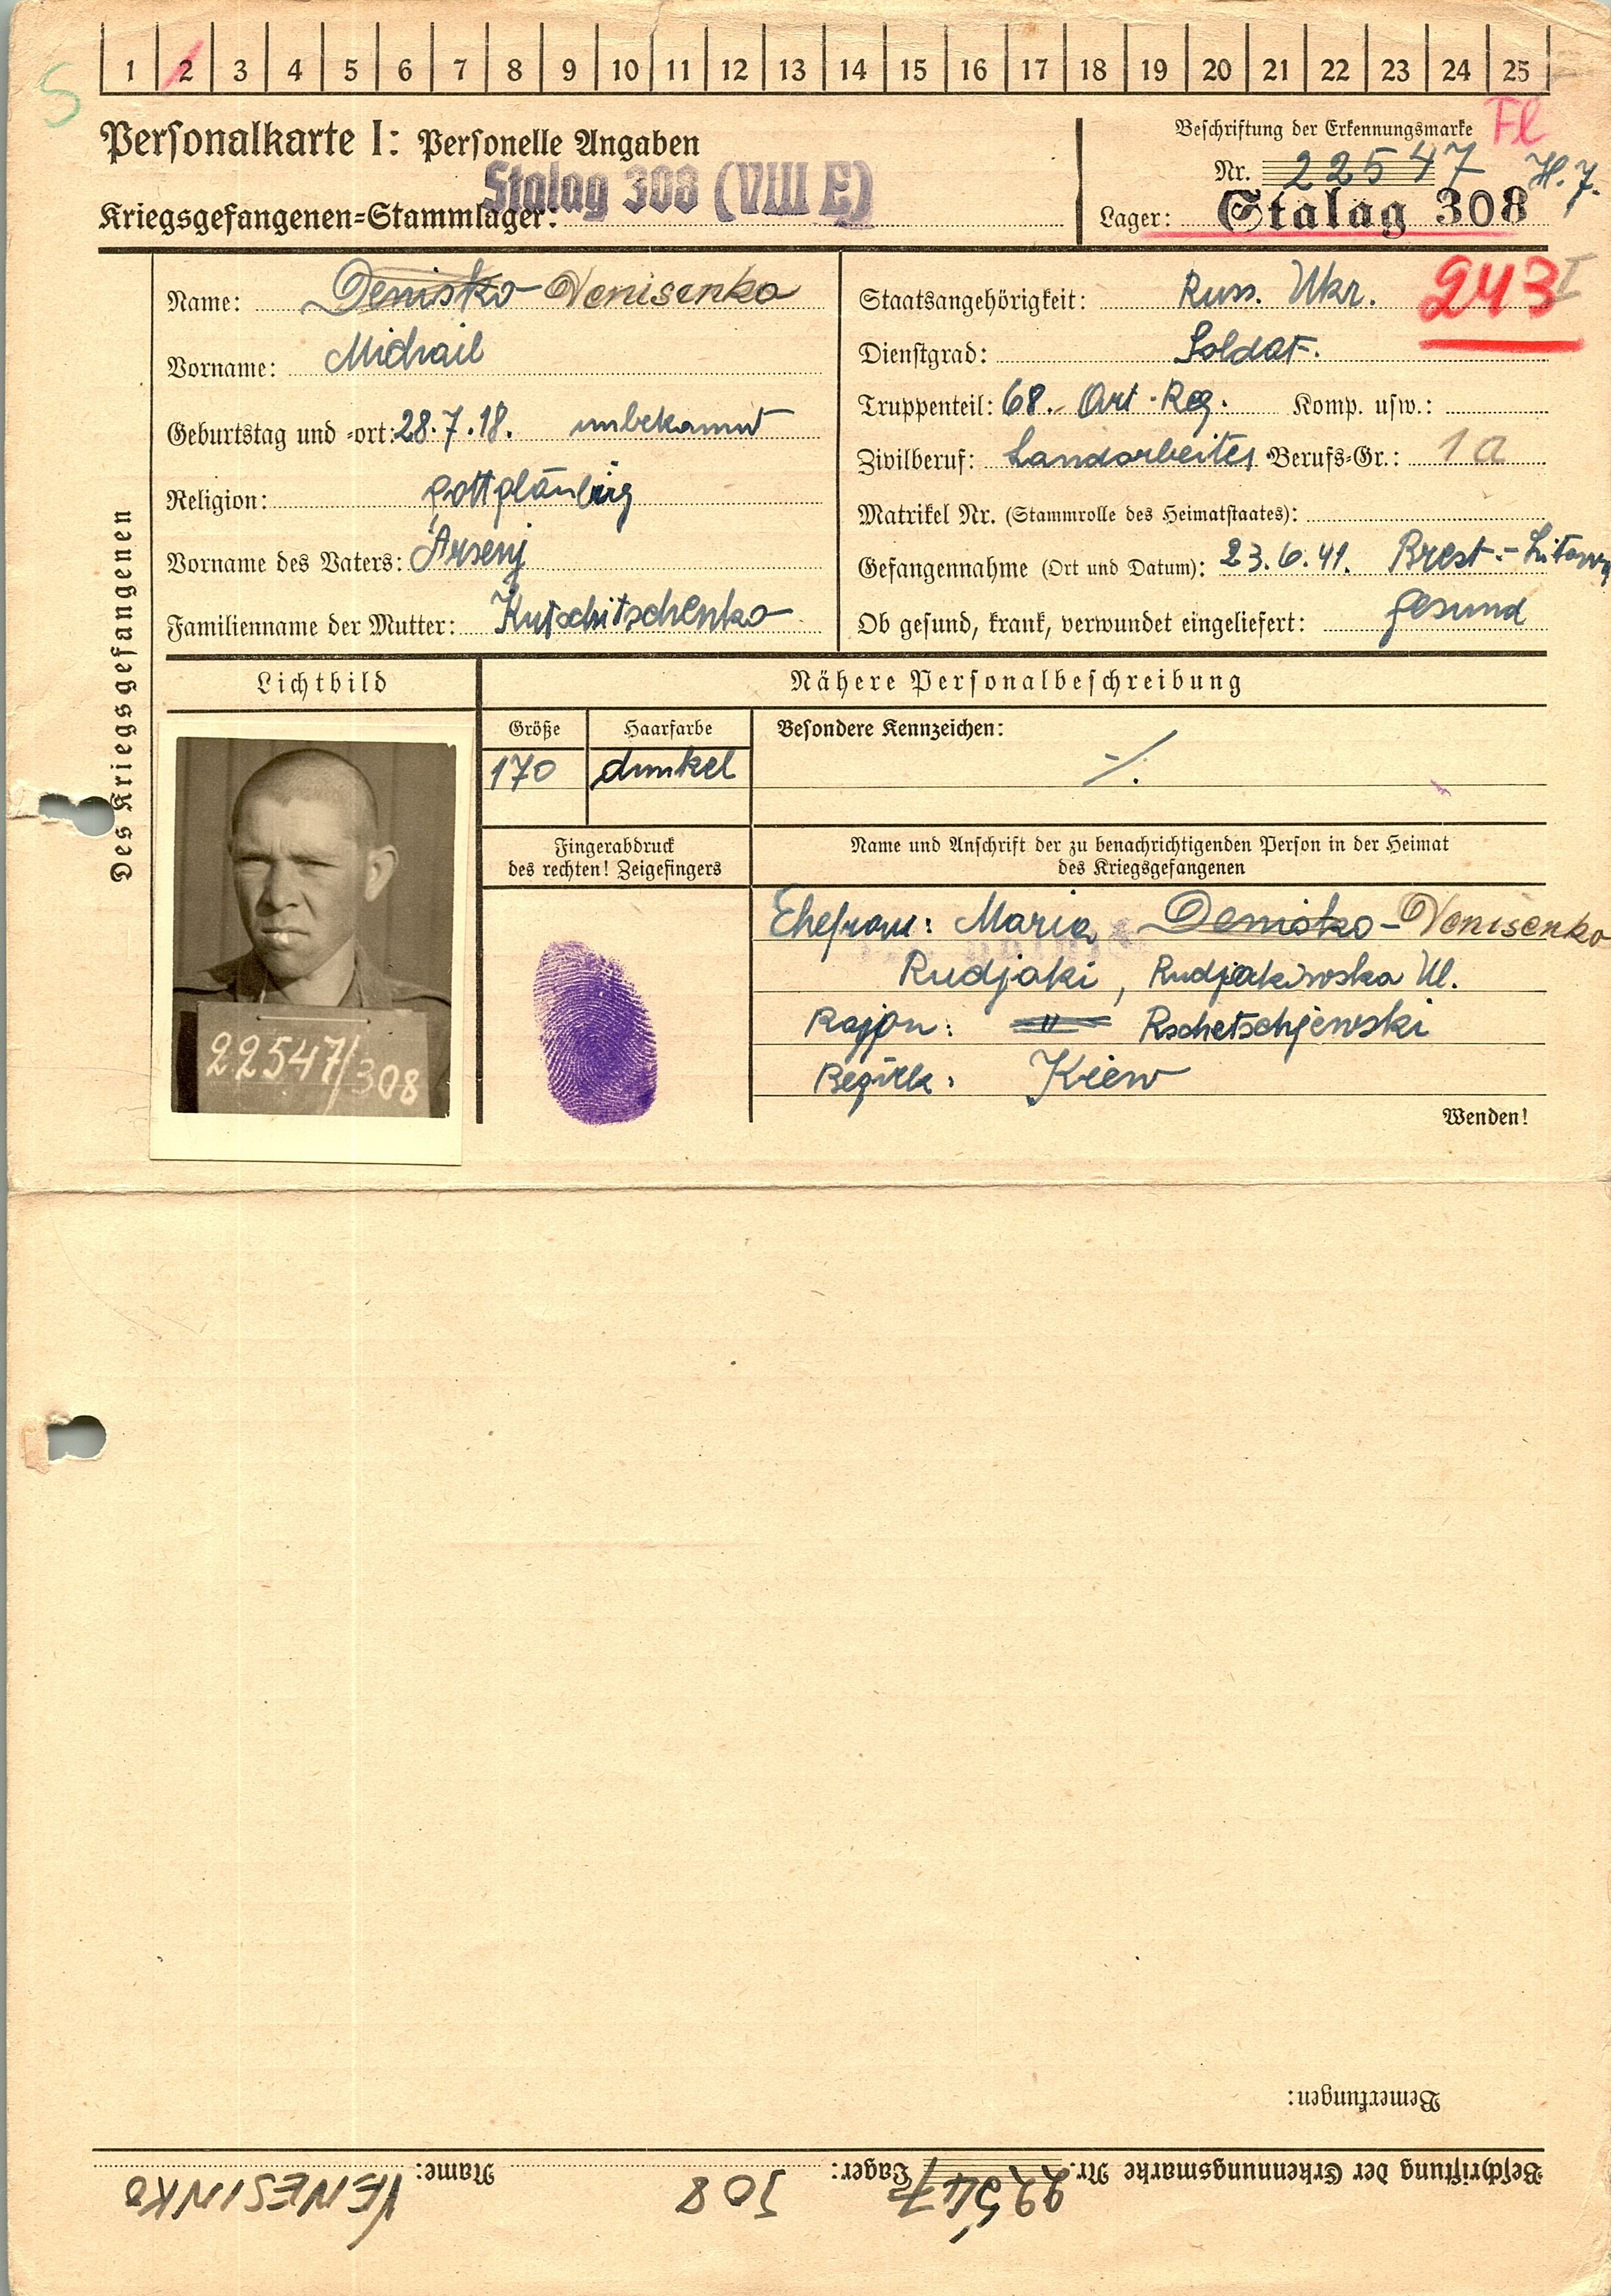 S
1 2 3 4 5 6 7 8 9 10 11 12 13 14 15 16 17 18 19 20 21 22 23 24 25
Personalkarte I: Personelle Angaben
Kriegsgefangenen-Stammlager: Stalag 308 (VIII E)
Beschriftung der Erkennungsmarke Fl
Nr. 22547 H. 7.
Lager: Stalag 308
243 I
Des Kriegsgefangenen
Name: Denisko Venisenko
Vorname: Michail
Geburtstag und -ort: 28.7.18. unbekannt
Religion: gottgläubig
Vorname des Vaters: Arsenj
Familienname der Mutter: Kutschitschenko
Staatsangehörigkeit: Russ. Ukr.
Dienstgrad: Soldat.
Truppenteil: 68. Art. Reg. Komp. usw.:
Zivilberuf: Landarbeiter Berufs-Gr.: 1a
Matrikel Nr. (Stammrolle des Heimatstaates):
Gefangennahme (Ort und Datum): 23.6.41. Brest-Litowsk
Ob gesund, krank, verwundet eingeliefert: gesund
Lichtbild
Nähere Personalbeschreibung
Größe
170
Haarfarbe
dunkel
Besondere Kennzeichen:
-/.
Fingerabdruck
des rechten! Zeigefingers
Name und Anschrift der zu benachrichtigenden Person in der Heimat
des Kriegsgefangenen
Ehefrau: Maria Denisko - Venisenko
Rudjaki, Rudjakowska Ul.
Rajon: " Rschetschjewski
Bezirk: Kiew
22547/308
Wenden!
Bemerkungen:
Beschriftung der Erkennungsmarke Nr. 22547 Lager: 308 Name: VENESINKO